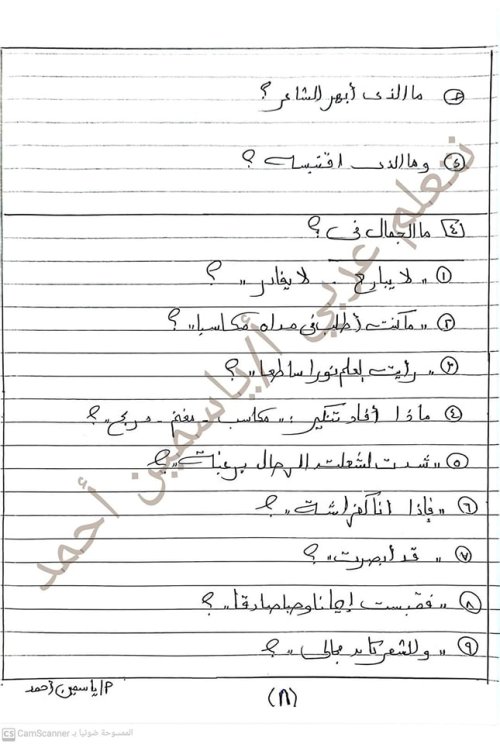 ٣ ما الذى أبهر الشاعر؟
٤ وما الذى اقتبسه؟
٤ ما الجمال فى؟
١ "لا يبارح - لا يغادر"؟
٢ "ما كنت أطلب فى مداه مكاسبا"؟
٣ "رأيت العلم نورا ساطعا"؟
٤ ماذا أفاد تنكير: "مكاسب - مغنم - مربح"؟
٥ "شدت لشعلته الرحال برغبة"؟
٦ "فإذا أنا كفراشة"؟
٧ "قد أبصرت"؟
٨ "فقبست إيمانا وحبا صادقا"؟
٩ "وللشعر كابد مجالى"؟
أ/ ياسمين أحمد
(٨)
نتعلم عربي أ/ ياسمين أحمد
الممسوحة ضوئيا بـ CamScanner
CS